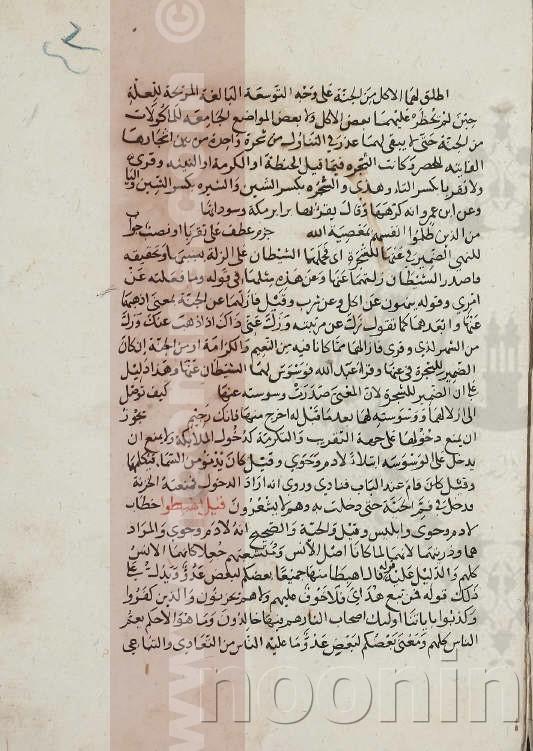 اطلق لهما الاكل من الجنة على وجه التوسعة البالغة المزيحة للعلة
حين لم يحظر عليهما بعض الاكل ولا بعض المواضع الجامعة للمأكولات
من الجنة حتى لا يبقى لهما عذر في التناول من شجرة واحدة من بين اشجارها
الفائتة للحصر وكانت الشجرة فيما قيل الحنطة او الكرمة او التينة وقرئ
ولا تقربا بكسر التاء وهذي والشجرة بكسر الشين والشيرة بكسر الشين والياء
وعن ابي عمرو انه كرهها وقال يقرأ بها برابر مكة وسودانها
من الذين ظلموا انفسهم بمعصية الله جزم عطف على تقربا او نصب جواب
للنهي الضمير في عنها للشجرة اي فحملهما الشيطان على الزلة بسببها وتحقيقه
فاصدر الشيطان زلتهما عنها وعن هذه مثلها في قوله وما فعلته عن
امري وقوله ينهون عن اكل وعن شرب وقيل فازلهما عن الجنة بمعنى اذهبهما
عنها وابعدهما كما تقول زل عن مرتبته وزل عني ذاك اذا ذهب عنك وزل
من الشهر كذى وقرئ فازالهما مما كانا فيه من النعيم والكرامة او من الجنة ان كان
الضمير للشجرة في عنها وقرأ عبد الله فوسوس لهما الشيطان عنها وهذا دليل
على ان الضمير للشجرة لان المعنى صدرت وسوسته عنها كيف توصل
الى ازلالهما ووسوسته لهما بعد ما قيل له اخرج منها فانك رجيم يجوز
ان يمنع دخولها على جهة التقريب والتكرمة كدخول الملائكة ولا يمنع ان
يدخل على الوسوسة ابتلاء لادم وحوى وقيل كان يدنو من السماء فيكلمهما
وقيل كان قام عند الباب فنادى وروى انه اراد الدخول فمنعته الخزنة
فدخل في فم الحية حتى دخلت به وهم لا يشعرون قيل اهبطوا خطاب
لادم وحوى وابليس وقيل والحية والصحيح انه لادم وحوى والمراد
هما وذريتهما لانهما لما كانا اصل الانس ومتشعبهم جعلا كانهما الانس
كلهم والدليل عليه قوله قال اهبطا منها جميعا بعضكم لبعض عدو ويدل على
ذلك قوله فمن تبع هداي فلا خوف عليهم ولا هم يحزنون والذين كفروا
وكذبوا باياتنا اوليك اصحاب النار هم فيها خالدون وما هو الا حكم يعم
الناس كلهم ومعنى بعضكم لبعض عدو ما عليه الناس من التعادي والتباغي
noonin